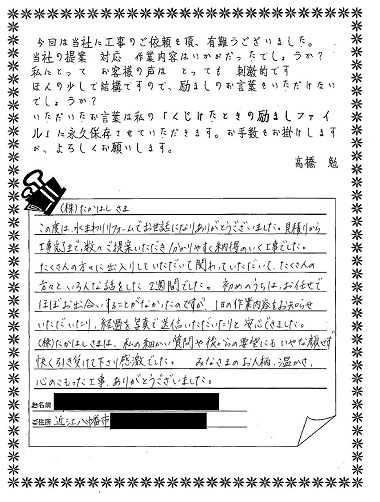 今回は当社に工事のご依頼を頂、有難うございました。
当社の提案 対応 作業内容はいかがだったでしょうか?
私にとって お客様の声は とっても 刺激的です
ほんの少しで結構ですので、励ましのお言葉をいただけない
でしょうか?
いただいたお言葉は私の「くじけたときの励ましファイ
ル」に永久保存させていただきます。お手数をお掛けします
が、よろしくお願いします。
高橋 勉
(株)たかはし さま
この度は、水まわりリフォームでお世話になりありがとうございました。見積りから
工事完了まで、数々ご提案いただき分かりやすく納得のいく工事でした。
たくさんの方々に出入りしていただいて関わっていただいて、たくさんの
方々といろんな話をした2週間でした。初めのうちは、お任せで
ほぼお出合いすることがなかったのですが、1日の作業内容をお知らせ
いただいたり、経過を写真で送信いただいたりと安心できました。
(株)たかはしさまは、私の細かい質問や後からの要望にもいやな顔せず
快く引き受けて下さり感激でした。 みなさまのお人柄、温かさ、
心のこもった工事、ありがとうございました。
お名前
ご住所 近江八幡市